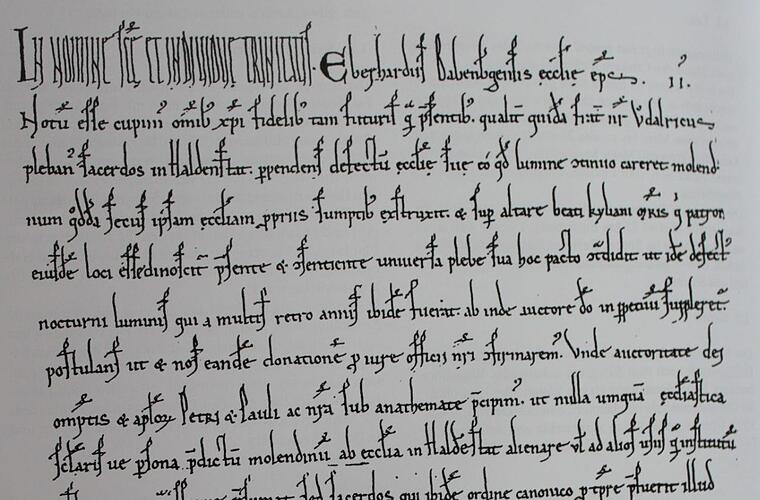 IN NOMINE SCĘ ET INDIVIDUĘ TRINITATIS. Eberhardus Babenbgensis ęcclię epc. II.
Notū esse cupim᾽ omib; xpi fidelib; tam futuris q̄ psentib. qualit̄ quidā frat̄ nr̄ Vdalricus
pleban᾽ sacerdos in Haldenstat. ppendens defectū ęcclię suę eo qd lumine ɔtinuo careret molendi
num qdda secus ipsam ęccliam ppriis sumptib; exstruxit. & sup altare beati kyliani mris q̄ patron᾽
eiusdē loci esse dinoscit̄ psente & ɔsentiente uniuersa plebe sua hoc pacto ɔtdidit ut idē defect᾽
nocturni luminis qui a multis retro annis ibidē fuerat. ab inde auctore dō in ppetuū suppleret̄
postulans ut & nos eandē donationē p iure officii nri ɔfirmarem᾽. Vnde auctoritate dei
omptis & aploꝝ Petri & Pauli ac nra sub anathemate pcipim᾽. ut nulla umquā ęcclīastica
sclaris ue psona pdictū molendinū ab ecclia in Haldestat alienare ul ad alios usus q̄ institutū
sacerdos qui ibidē ordine canonico pt̄pre pfuerit illud